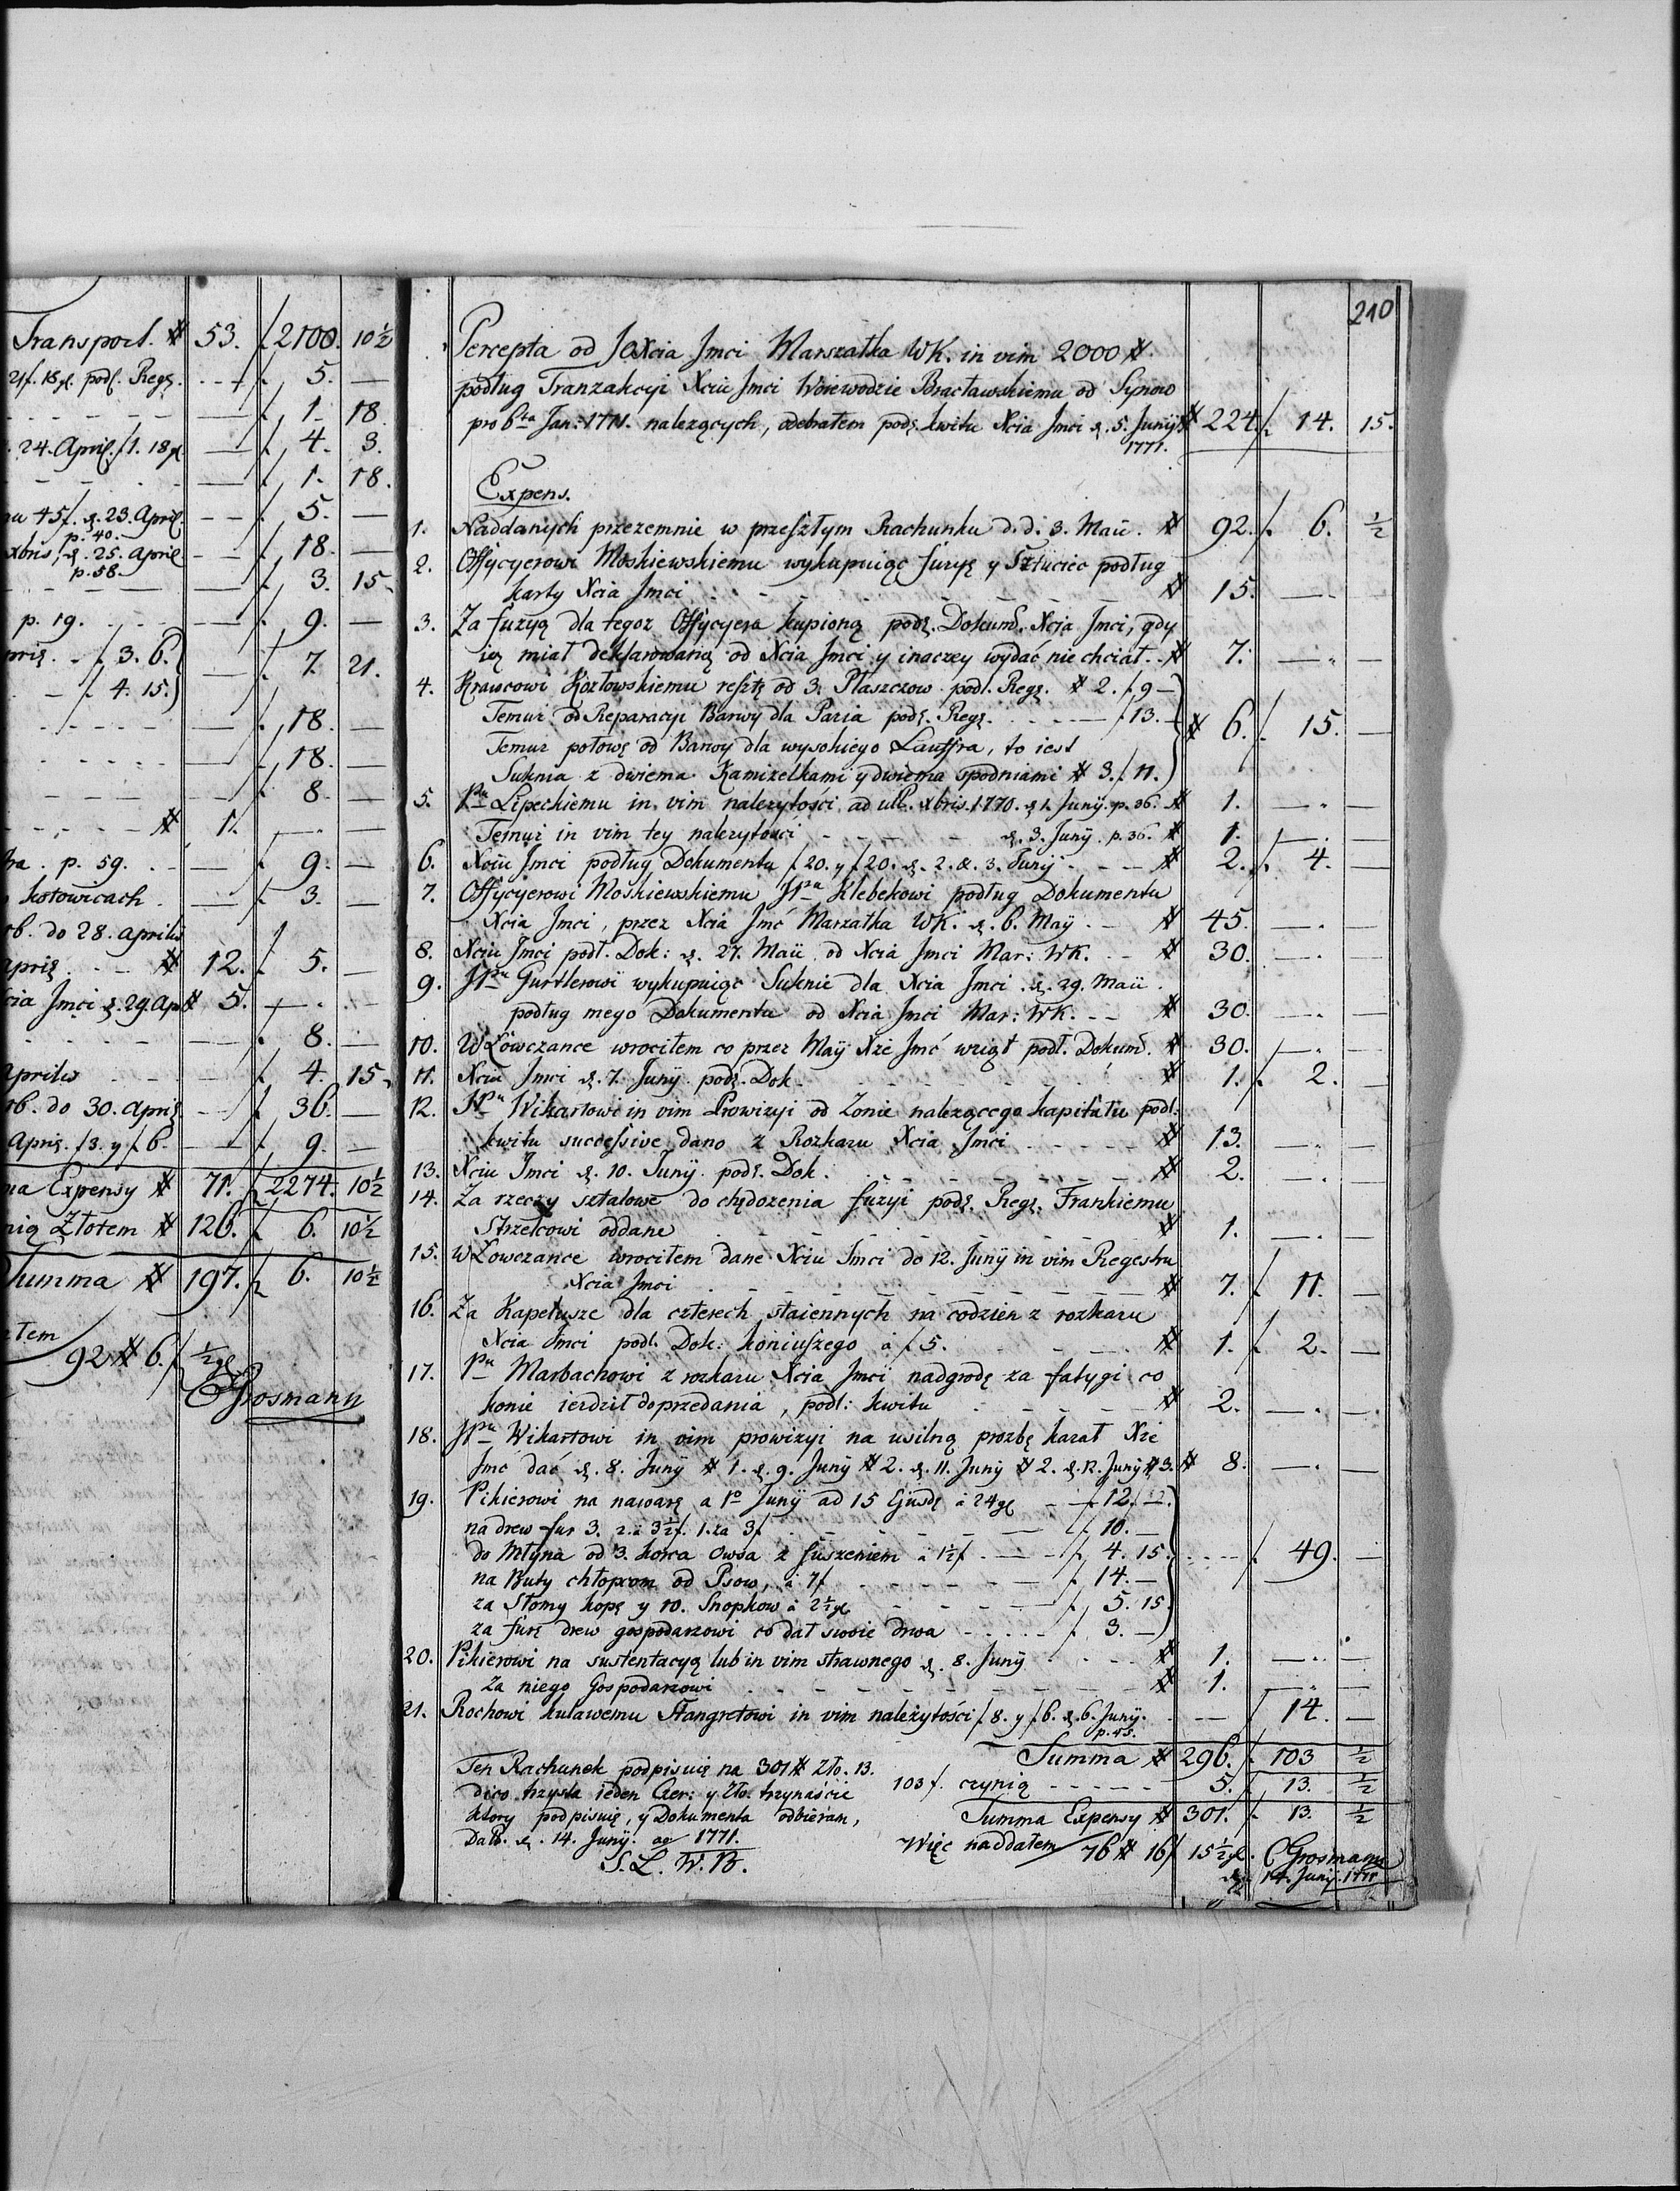 Transport. # 53. f. 2100. 10½
21f. 18gl. podł. Regę. f. 5. —
f. 1. 18.
24. April. f1. 18gl f. 4. 3.
f. 1. 18.
45f. d. 23. April. f. 5. —
p. 40.
xbris, d. 25. April f. 18. —
p. 58.
f. 3. 15.
p. 19. f. 9. —
f. 3. 6.
f. 7. 21.
f. 4. 15.
f. 18. —
f. 18. —
f. 8. —
# 1. — —
p. 59. f. 9. —
kotowicach. f. 3. —
do 28. aprilis
# 12. f. 5. —
Xcia Jmci d. 29. Apr # 5. — —
f. 8. —
aprilis f. 4. 15.
do 30. April f. 36. —
April. f3. y f6. f. 9. —
Expensy # 71. f. 2274. 10½
Złotem # 126. f. 6. 10½
Summa # 197. f. 6. 10½
92 # 6. f ½gl
CGrosmann
210
Percepta od JOXcia Jmci Marszałka WK. in vim 2000 #.
podług Tranzakcyi Xciu Jmci Woiewodzie Bracławskiemu od Synow
pro 6ta Jan: 1771. należących, odebrałem podł. kwitu Xcia Jmci d. 5. Junÿ # 224. f. 14. 15.
1771.
Expens.
1. Naddanych przezemnie w przeszłym Rachunku d. d. 3. Maii. # 92. f. 6. ½
2. Offycyerowi Moskiewskiemu wykupuiąc fuzyę y Sztuciec podług
karty Xcia Jmci # 15. — —
3. Za fuzyą dla tegoz Offycyera kupioną podł. Dokum. Xcia Jmci, gdy
ią miał deklarowaną od Xcia Jmci y inaczey wydać nie chciał. # 7. — —
4. Krawcowi Kozłowskiemu resztę od 3. Płaszczow podł. Regę. # 2. f. 9 —
Temuż od Reparacyi Barwy dla Pazia podł. Regę. f 13. — # 6. f. 15. —
Temuz połowę od Barwy dla wysokiego Lauffra, to iest
Suknia z dwiema Kamizelkami y dwiema spodniami # 3. f. 11.
5. Pnu Lipeckiemu in vim należytości ad ult. xbris. 1770. d 1. Junÿ. p. 36. # 1. — —
Temuż in vim tey należytości d. 3. Junÿ. p. 36. # 1. — —
6. Xciu Jmci podług Dokumentu f 20. y f 20. d. 2. & 3. Junÿ # 2. f. 4. —
7. Offycyerowi Moskiewskiemu JPnu Klebekowi podług Dokumentu
Xcia Jmci, przez Xcia Jmć Marszałka WK. d. 6. Maÿ # 45. — —
8. Xciu Jmci podł. Dok: d. 27. Maii od Xcia Jmci Mar: WK. # 30. — —
9. JPnu Gurtlerowi wykupuiąc Suknie dla Xcia Jmci d. 29. Maii.
podług mego Dokumentu od Xcia Jmci Mar: WK. # 30. — —
10. WŁowczance wrociłem co przez Maÿ Xże Jmć wziął podł. Dokum. # 30. — —
11. Xciu Jmci d. 7. Junÿ podł. Dok # 1. f. 2. —
12. JPnu Wikartowi in vim Prowizyi od Zonie należącego kapitału podł.
kwitu successive dano z Rozkazu Xcia Jmci # 13. — —
13. Xciu Jmci d. 10. Junÿ podł. Dok. # 2. — —
14. Za rzeczy sztalowe do chędożenia fuzyi podł. Regę. Frankiemu
Strzelcowi oddane # 1. — —
15. WŁowczance wrociłem dane Xciu Jmci do 12. Junÿ in vim Regestru
Xcia Jmci # 7. f. 11. —
16. Za Kapelusze dla czterech staiennych na codzien z rozkazu
Xcia Jmci podł. Dok: koniuszego à f 5. # 1. f. 2. —
17. Pnu Marbachowi z rozkazu Xcia Jmci nadgrodę za fatygi co
konie ieździł do przedania, podł: kwitu # 2. — —
18. JPnu Wikartowi in vim prowizyi na usilną prozbę kazał Xże
Jmć dać d. 8. Junÿ # 1. d. 9. Junÿ # 2. d. 11. Junÿ # 2. d. 12. Junÿ # 3. # 8. — —
19. Pikierowi na nawarę a 1o Junÿ ad 15 Ejusd. à 24gl f. 12. —
na drew fur 3. 2. à 3½f. 1. za 3f f. 10. —
do Młyna od 3. korca Owsa z suszeniem à 1½f f. 4. 15. f. 49. —
na Buty chłopcom od Psow, à 7f f. 14. —
za Słomy kopę y 10. Snopkow à 2½gl f. 5. 15.
za furę drew gospodarzowi co dał swoie drwa f. 3. —
20. Pikierowi na sustentacyą lub in vim strawnego d. 8. Junÿ # 1. — —
Za niego Gospodarzowi # 1. — —
21. Rochowi kulawemu Stangretowi in vim należytości f 8. y f. 6. d. 6. Junÿ. — f 14. —
p. 45.
Summa # 296. f. 103 ½
Ten Rachunek podpisuię na 301 # Zło. 13.
103 f. czynią 5. f. 13. ½
dico trzysta ieden Czer: y Zło. trzynaście
ktory podpisuię, y Dokumenta odbieram,
Summa Expensy # 301. f. 13. ½
Datt. d. 14. Junÿ. ao 1771.
Więc naddałem 76 # 16f 15½gl. CGrosmann
S. L. W. B.
d. 14. Junÿ. 1771